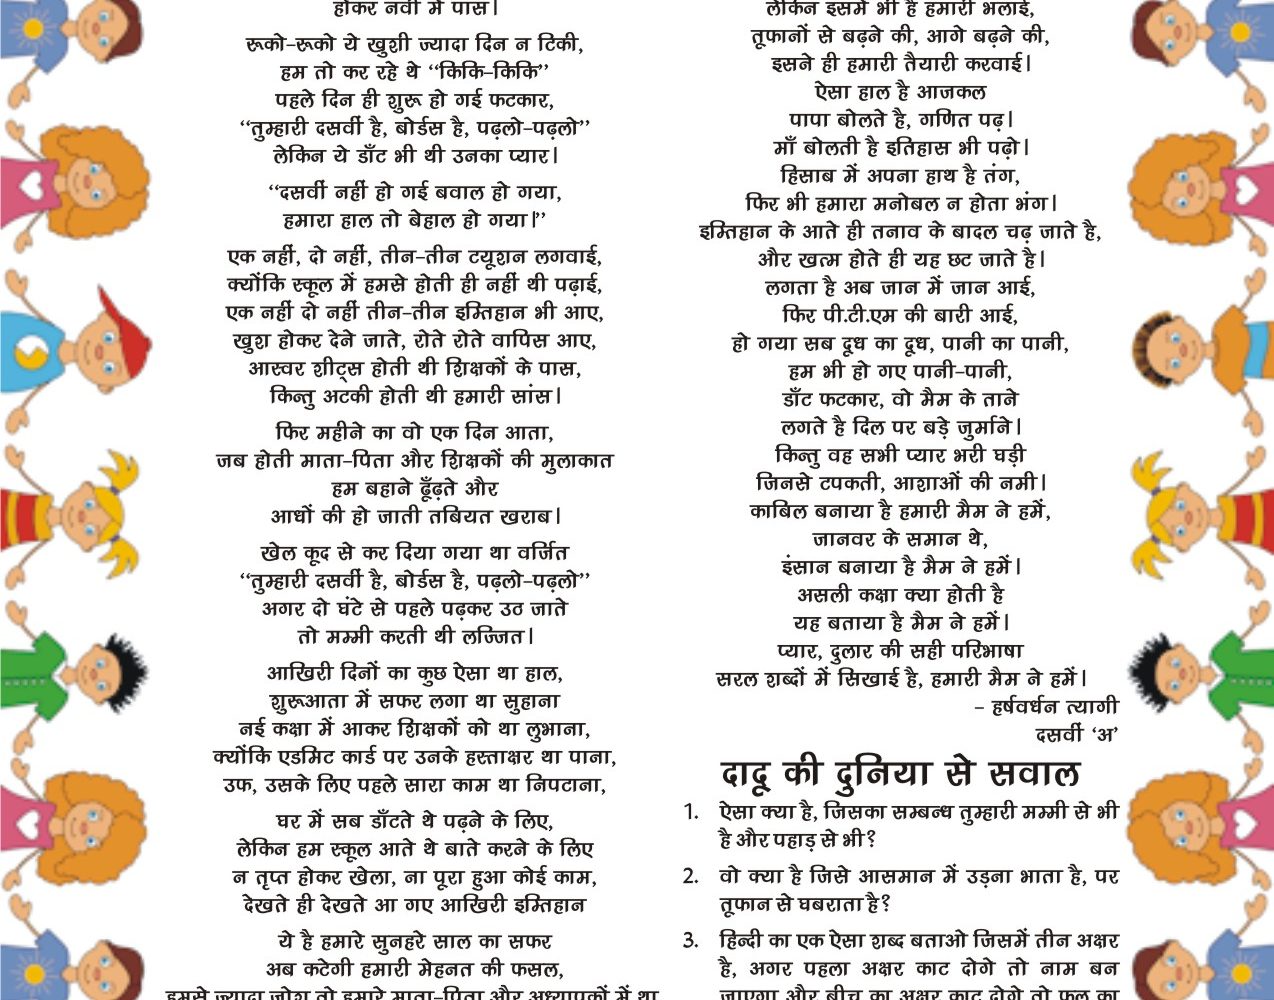 होकर नवीं में पास।
रूको-रूको ये खुशी ज्यादा दिन न टिकी,
हम तो कर रहे थे “किकि-किकि”
पहले दिन ही शुरू हो गई फटकार,
“तुम्हारी दसवीं है, बोर्डस है, पढ़लो-पढ़लो”
लेकिन ये डाँट भी थी उनका प्यार।
“दसवीं नहीं हो गई बवाल हो गया,
हमारा हाल तो बेहाल हो गया।”
एक नहीं, दो नहीं, तीन-तीन टयूशन लगवाई,
क्योंकि स्कूल में हमसे होती ही नहीं थी पढ़ाई,
एक नहीं दो नहीं तीन-तीन इम्तिहान भी आए,
खुश होकर देने जाते, रोते रोते वापिस आए,
आस्वर शीट्स होती थी शिक्षकों के पास,
किन्तु अटकी होती थी हमारी सांस।
फिर महीने का वो एक दिन आता,
जब होती माता-पिता और शिक्षकों की मुलाकात
हम बहाने ढूँढ़ते और
आधों की हो जाती तबियत खराब।
खेल कूद से कर दिया गया था वर्जित
“तुम्हारी दसवीं है, बोर्डस है, पढ़लो-पढ़लो”
अगर दो घंटे से पहले पढ़कर उठ जाते
तो मम्मी करती थी लज्जित।
आखिरी दिनों का कुछ ऐसा था हाल,
शुरूआता में सफर लगा था सुहाना
नई कक्षा में आकर शिक्षकों को था लुभाना,
क्योंकि एडमिट कार्ड पर उनके हस्ताक्षर था पाना,
उफ, उसके लिए पहले सारा काम था निपटाना,
घर में सब डाँटते थे पढ़ने के लिए,
लेकिन हम स्कूल आते थे बाते करने के लिए
न तृप्त होकर खेला, ना पूरा हुआ कोई काम,
देखते ही देखते आ गए आखिरी इम्तिहान
ये है हमारे सुनहरे साल का सफर
अब कटेगी हमारी मेहनत की फसल,
हमसे ज्यादा जोश तो हमारे माता-पिता और अध्यापकों में था
लेकिन इसमें भी है हमारी भलाई,
तूफानों से बढ़ने की, आगे बढ़ने की,
इसने ही हमारी तैयारी करवाई।
ऐसा हाल है आजकल
पापा बोलते है, गणित पढ़।
माँ बोलती है इतिहास भी पढ़ो।
हिसाब में अपना हाथ है तंग,
फिर भी हमारा मनोबल न होता भंग।
इम्तिहान के आते ही तनाव के बादल चढ़ जाते है,
और खत्म होते ही यह छट जाते है।
लगता है अब जान में जान आई,
फिर पी.टी.एम की बारी आई,
हो गया सब दूध का दूध, पानी का पानी,
हम भी हो गए पानी-पानी,
डाँट फटकार, वो मैम के ताने
लगते है दिल पर बड़े जुर्माने।
किन्तु वह सभी प्यार भरी घड़ी
जिनसे टपकती, आशाओं की नमी।
काबिल बनाया है हमारी मैम ने हमें,
जानवर के समान थे,
इंसान बनाया है मैम ने हमें।
असली कक्षा क्या होती है
यह बताया है मैम ने हमें।
प्यार, दुलार की सही परिभाषा
सरल शब्दों में सिखाई है, हमारी मैम ने हमें।
- हर्षवर्धन त्यागी
दसवीं ‘अ’
दादू की दुनिया से सवाल
1. ऐसा क्या है, जिसका सम्बन्ध तुम्हारी मम्मी से भी
है और पहाड़ से भी?
2. वो क्या है जिसे आसमान में उड़ना भाता है, पर
तूफान से घबराता है?
3. हिन्दी का एक ऐसा शब्द बताओ जिसमें तीन अक्षर
है, अगर पहला अक्षर काट दोगे तो नाम बन
जाएगा और बीच का अक्षर काट दोगे तो फल का